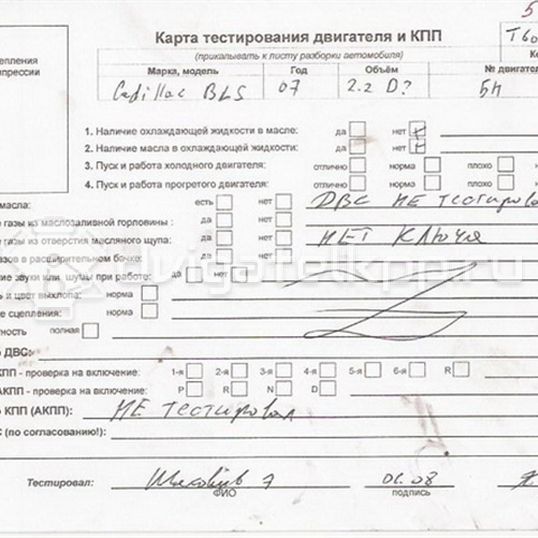 5
Карта тестирования двигателя и КПП
Т60
епления
(прикалывать к листу разборки автомобиля)
Ко
прессии
Марка, модель Год Объём № двигател
Cadillac BLS 07 2.2 D? 5Н
1. Наличие охлаждающей жидкости в масле: да нет
2. Наличие масла в охлаждающей жидкости: да нет
3. Пуск и работа холодного двигателя: отлично норма плохо не
4. Пуск и работа прогретого двигателя: отлично норма плохо не
масла: есть нет ДВС НЕ Тестирова
е газы из маслозаливной горловины : да нет
е газы из отверстия масляного щупа: да нет НЕТ КЛЮЧА
азов в расширительном бачке: да нет
ие звуки или шумы при работе: да нет
ь и цвет выхлопа: норма
е сцепления: норма
тность полная
о ДВС:
КПП - проверка на включение: 1-я 2-я 3-я 4-я 5-я 6-я R
АКПП - проверка на включение: P R N D
о КПП (АКПП): НЕ тестировал
С (по согласованию!):
Тестировал: 06.08
ФИО подпись
dvigatelkpp.ru